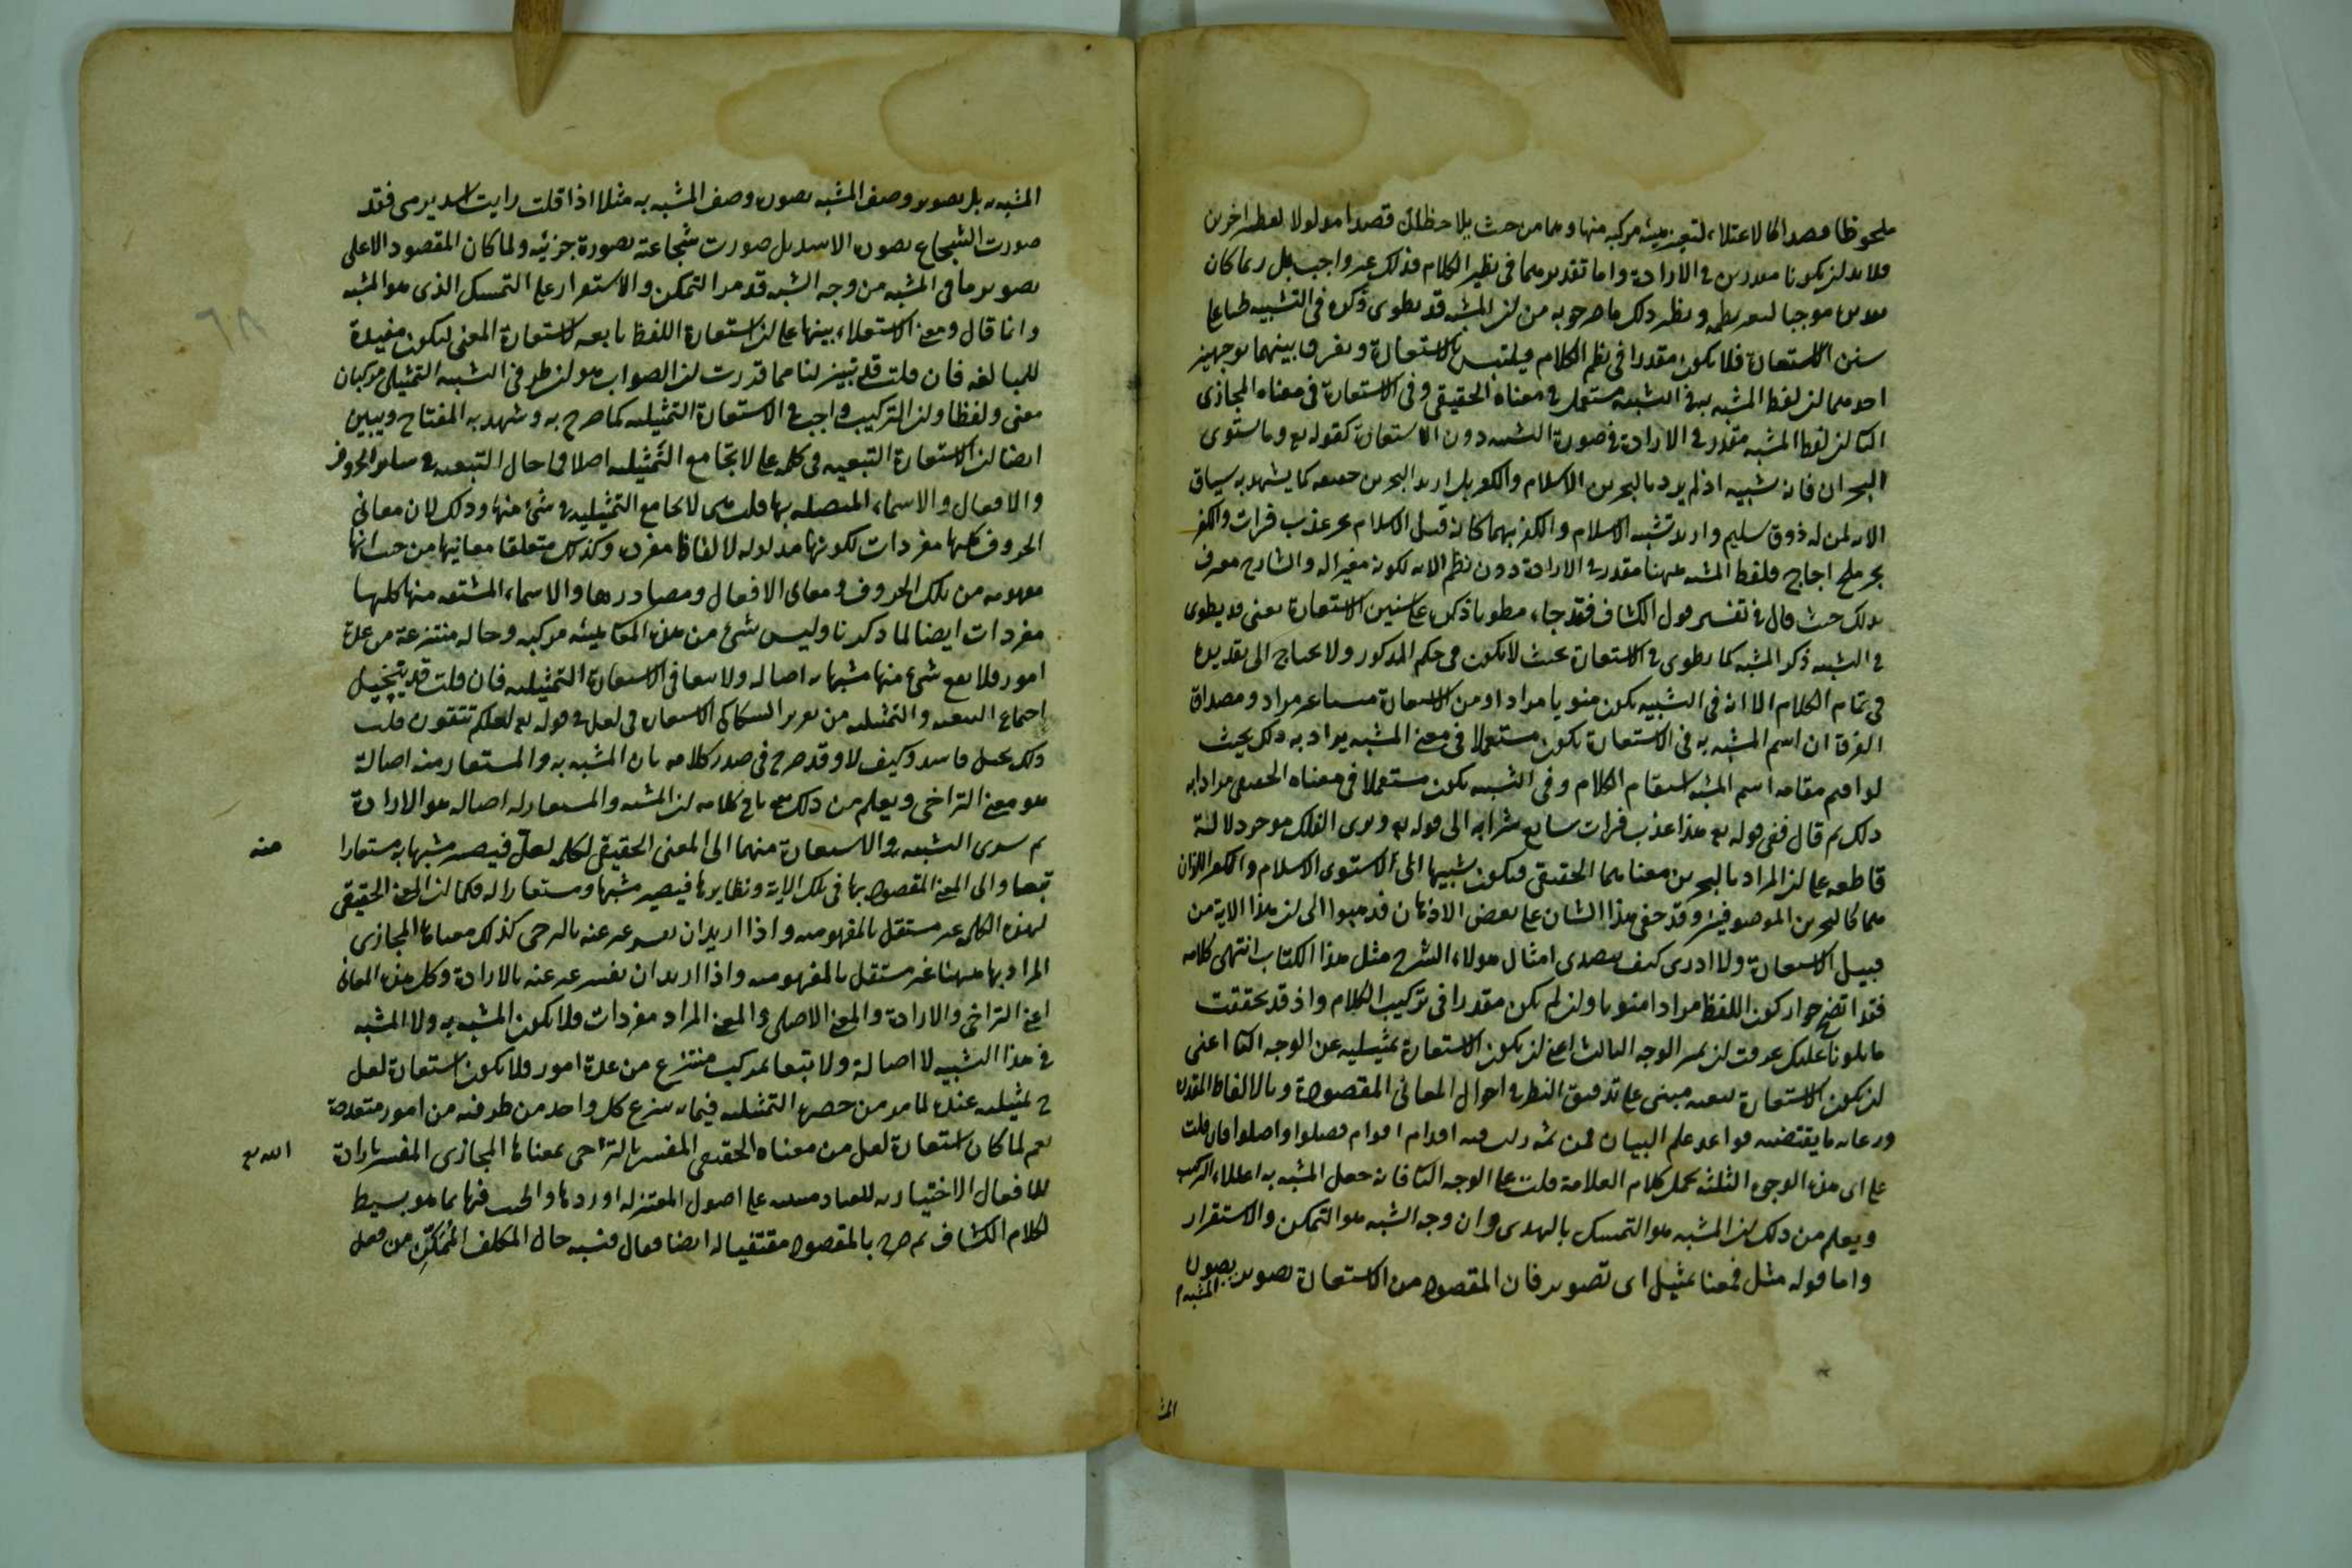 ملحوظا قصدا كالاعتلاء لتعتبر هيئة مركبة منها وهما من حيث يلاحظان قصدا مدلولا لفظين اخرين
فلا بد لن يكونا مقدرين في الارادة واما تقديرهما في نظم الكلام فذلك غير واجب بل ربما كان
موجبا لتغير نظمه ونظير ذلك ما صرحوا به من لن المشبه قد يطوى ذكره في التشبيه طباعا
سنن الاستعارة فلا يكون مقدرا في نظم الكلام فيلتبس بالاستعارة ويفرق بينهما بوجهين
احدهما لن لفظ المشبه به في التشبيه مستعمل في معناه الحقيقي وفي الاستعارة في معناه المجازي
الثاني لن لفظ المشبه مقدر في الارادة في صورة التشبيه دون الاستعارة كقوله تع وما يستوى
البحران فانه تشبيه اذ لم يرد بالبحرين الاسلام والكفر بل اريد البحرين حقيقة كما يشهد به سياق
الاية لمن له ذوق سليم واريد تشبيه الاسلام والكفر بهما كانه قيل الاسلام بحر عذب فرات والكفر
بحر ملح اجاج فلفظ المشبه ههنا مقدر في الارادة دون نظم الاية لكونه مغيرا له والشارح معرف
بذلك حيث قال في تفسير قول الكشاف فقد جاء مطويا ذكره على سنن الاستعارة يعني قد يطوى
في التشبيه ذكر المشبه كما يطوى في الاستعارة بحيث لا يكون في حكم المذكور ولا يحتاج الى تقديره
في تمام الكلام الا انه في التشبيه يكون منويا مرادا ومن الاستعارة منسيا غير مراد ومصداق
الفرق ان اسم المشبه به في الاستعارة يكون مستعملا في معنى المشبه يراد به ذلك بحيث
لو اقيم مقامه اسم المشبه استقام الكلام وفي التشبيه يكون مستعملا في معناه الحقيقي مرادا به
ذلك ثم قال ففي قوله تع هذا عذب فرات سايغ شرابه الى قوله تع وترى الفلك موخر دلالة
قاطعة على لن المراد بالبحرين معناهما الحقيقي فيكون تشبيها اى لا يستوى الاسلام والكفر اللذان
هما كالبحرين الموصوفين وقد خفى هذا الشان على بعض الاذهان فذهبوا الى لن هذا الاية من
قبيل الاستعارة ولا ادرى كيف يتصدى امثال هولاء لشرح مثل هذا الكتاب انتهى كلامه
فقد اتضح جواز كون اللفظ مرادا منويا ولن لم يكن مقدرا في تركيب الكلام واذ قد تحققت
ما تلونا عليك عرفت لن الوجه الثالث اعني لن يكون الاستعارة تمثيلية عن الوجه الثاني اعنى
لن يكون الاستعارة تبعية مبنى على تدقيق النظر في احوال المعانى المقصودة وبالالفاظ المقدرة
ورعاية ما يقتضيه قواعد علم البيان فمن ثمة زلت فيه اقدام اقوام فضلوا واضلوا فان قلت
على اى هذه الوجوه الثلثة تحمل كلام العلامة قلت على الوجه الثاني فانه جعل المشبه به اعتلاء الراكب
ويعلم من ذلك لن المشبه هو التمسك بالهدى وان وجه الشبه هو التمكن والاستقرار
واما قوله مثل فمعنا تمثيل اى تصوير فان المقصود من الاستعارة تصوير بصورة
المشبه
المشبه به بل تصوير وصف المشبه بصورة وصف المشبه به مثلا اذا قلت رايت اسد يرمى فقد
صورت الشجاع بصورة الاسد بل صورت شجاعته بصورة جزئيه ولما كان المقصود الاعلى
تصوير ما في المشبه من وجه الشبه قدم التمكن والاستقرار على التمسك الذى هو المشبه
وانما قال ومعنى الاستعلاء تنبيها على لن استعارة اللفظ تابعة لاستعارة المعنى لتكون مفيدة
للمبالغة فان قلت قد تبين لنا مما قدرت لن الصواب هو لن طرفى التشبيه التمثيلى مركبان
معنى ولفظا ولن التركيب واجب في الاستعارة التمثيلية كما صرح به وشهد به المفتاح وتبين
ايضا لن الاستعارة التبعية في كلمة على لا تجامع التمثيلية اصلا فما حال التبعية في ساير الحروف
والافعال والاسماء المتصلة بها قلت هى لا تجامع التمثيلية في شئ منها وذلك لان معانى
الحروف كلها مفردات لكونها مدلولة لالفاظ مفردة وكذلك متعلقا معانيها من حيث انها
مفهومه من تلك الحروف ومعانى الافعال ومصادرها والاسماء المشتقه منها كلها
مفردات ايضا لما ذكرنا وليس شئ من هذه المعانى هيئة مركبه وحاله منتزعة من عدة
امور فلا يقع شئ منها مشبها به اصالة ولا تبعا في الاستعارة التمثيلية فان قلت قد يتخيل
اجتماع التبعية والتمثيلية من تقرير السكاكى الاستعارة في لعل في قوله تع لعلكم تتقون قلت
ذلك تخيل فاسد وكيف لا وقد صرح في صدر كلامه بان المشبه به والمستعار منه اصالة
هو معنى التراخى ويعلم من ذلك مع باقى كلامه لن المشبه والمستعار له اصالة هو الارادة
ثم سرى التشبيه والاستعارة منهما الى المعنى الحقيقي لكلمة لعل فيصير مشبها به مستعارا
منه
تبعا والى المعنى المقصود بها في تلك الاية ونظايرها فيصير مشبها ومستعارا له فكما لن المعنى الحقيقي
لهذه الكلمة غير مستقل بالمفهومية واذا اريد ان يفسر عبر عنه بالترجى كذلك معناها المجازى
المراد بها ههنا غير مستقل بالمفهومية واذا اريد ان يفسر عبر عنه بالارادة وكل هذه المعانى
اعنى التراخى والارادة والمعنى الاصلى والمعنى المراد مفردات فلا يكون المشبه به ولا المشبه
في هذا التشبيه لا اصالة ولا تبعا بمركب منتزع من عدة امور فلا يكون استعارة لعل
تمثيليه عنده لما مر من حصره التمثيلية فيما ينتزع كل واحد من طرفيه من امور متعددة
نعم لما كان استعارة لعل من معناه الحقيقي المفسر بالتراخى بمعناها المجازى المفسر بارادة
الله تع
للافعال الاختيارية للعباد مبنية على اصول المعتزلة اوردها والحث فيها بما هو بسيط
لكلام الكشاف ثم صرح بالمقصود مقتفيا له ايضا فقال فشبه حال المكلف المُمَكَّن من فعل